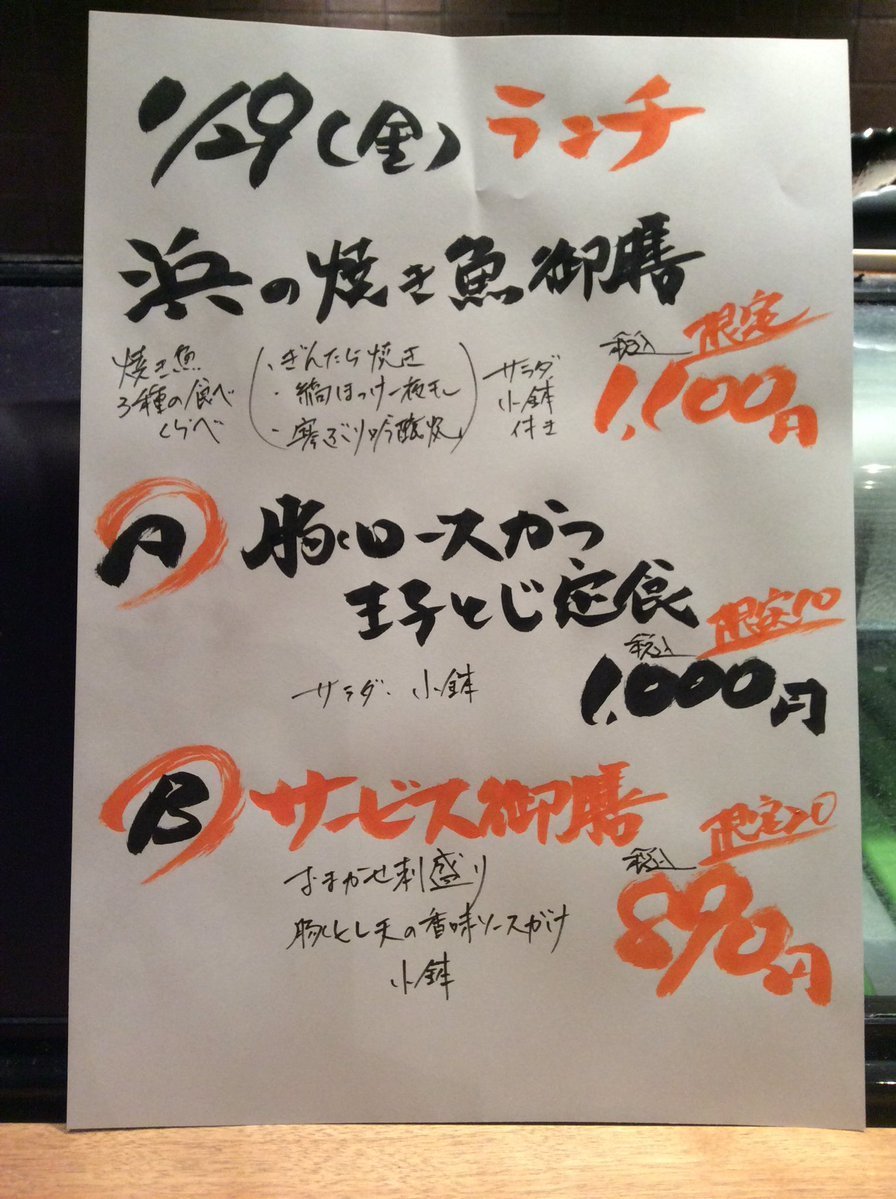 1/29(金) ランチ
浜の焼き魚御膳
限定
焼き魚
3種の食べ
くらべ
・ぎんだら焼き
・縞ほっけ一夜干し
・寒ぶり吟醸焼
サラダ
小鉢
付き
税込
1,100円
A 豚ロースかつ
玉子とじ定食
限定10
サラダ、小鉢
税込
1,000円
B サービス御膳
限定20
おまかせ刺盛り
豚とし天の香味ソースがけ
小鉢
税込
890円